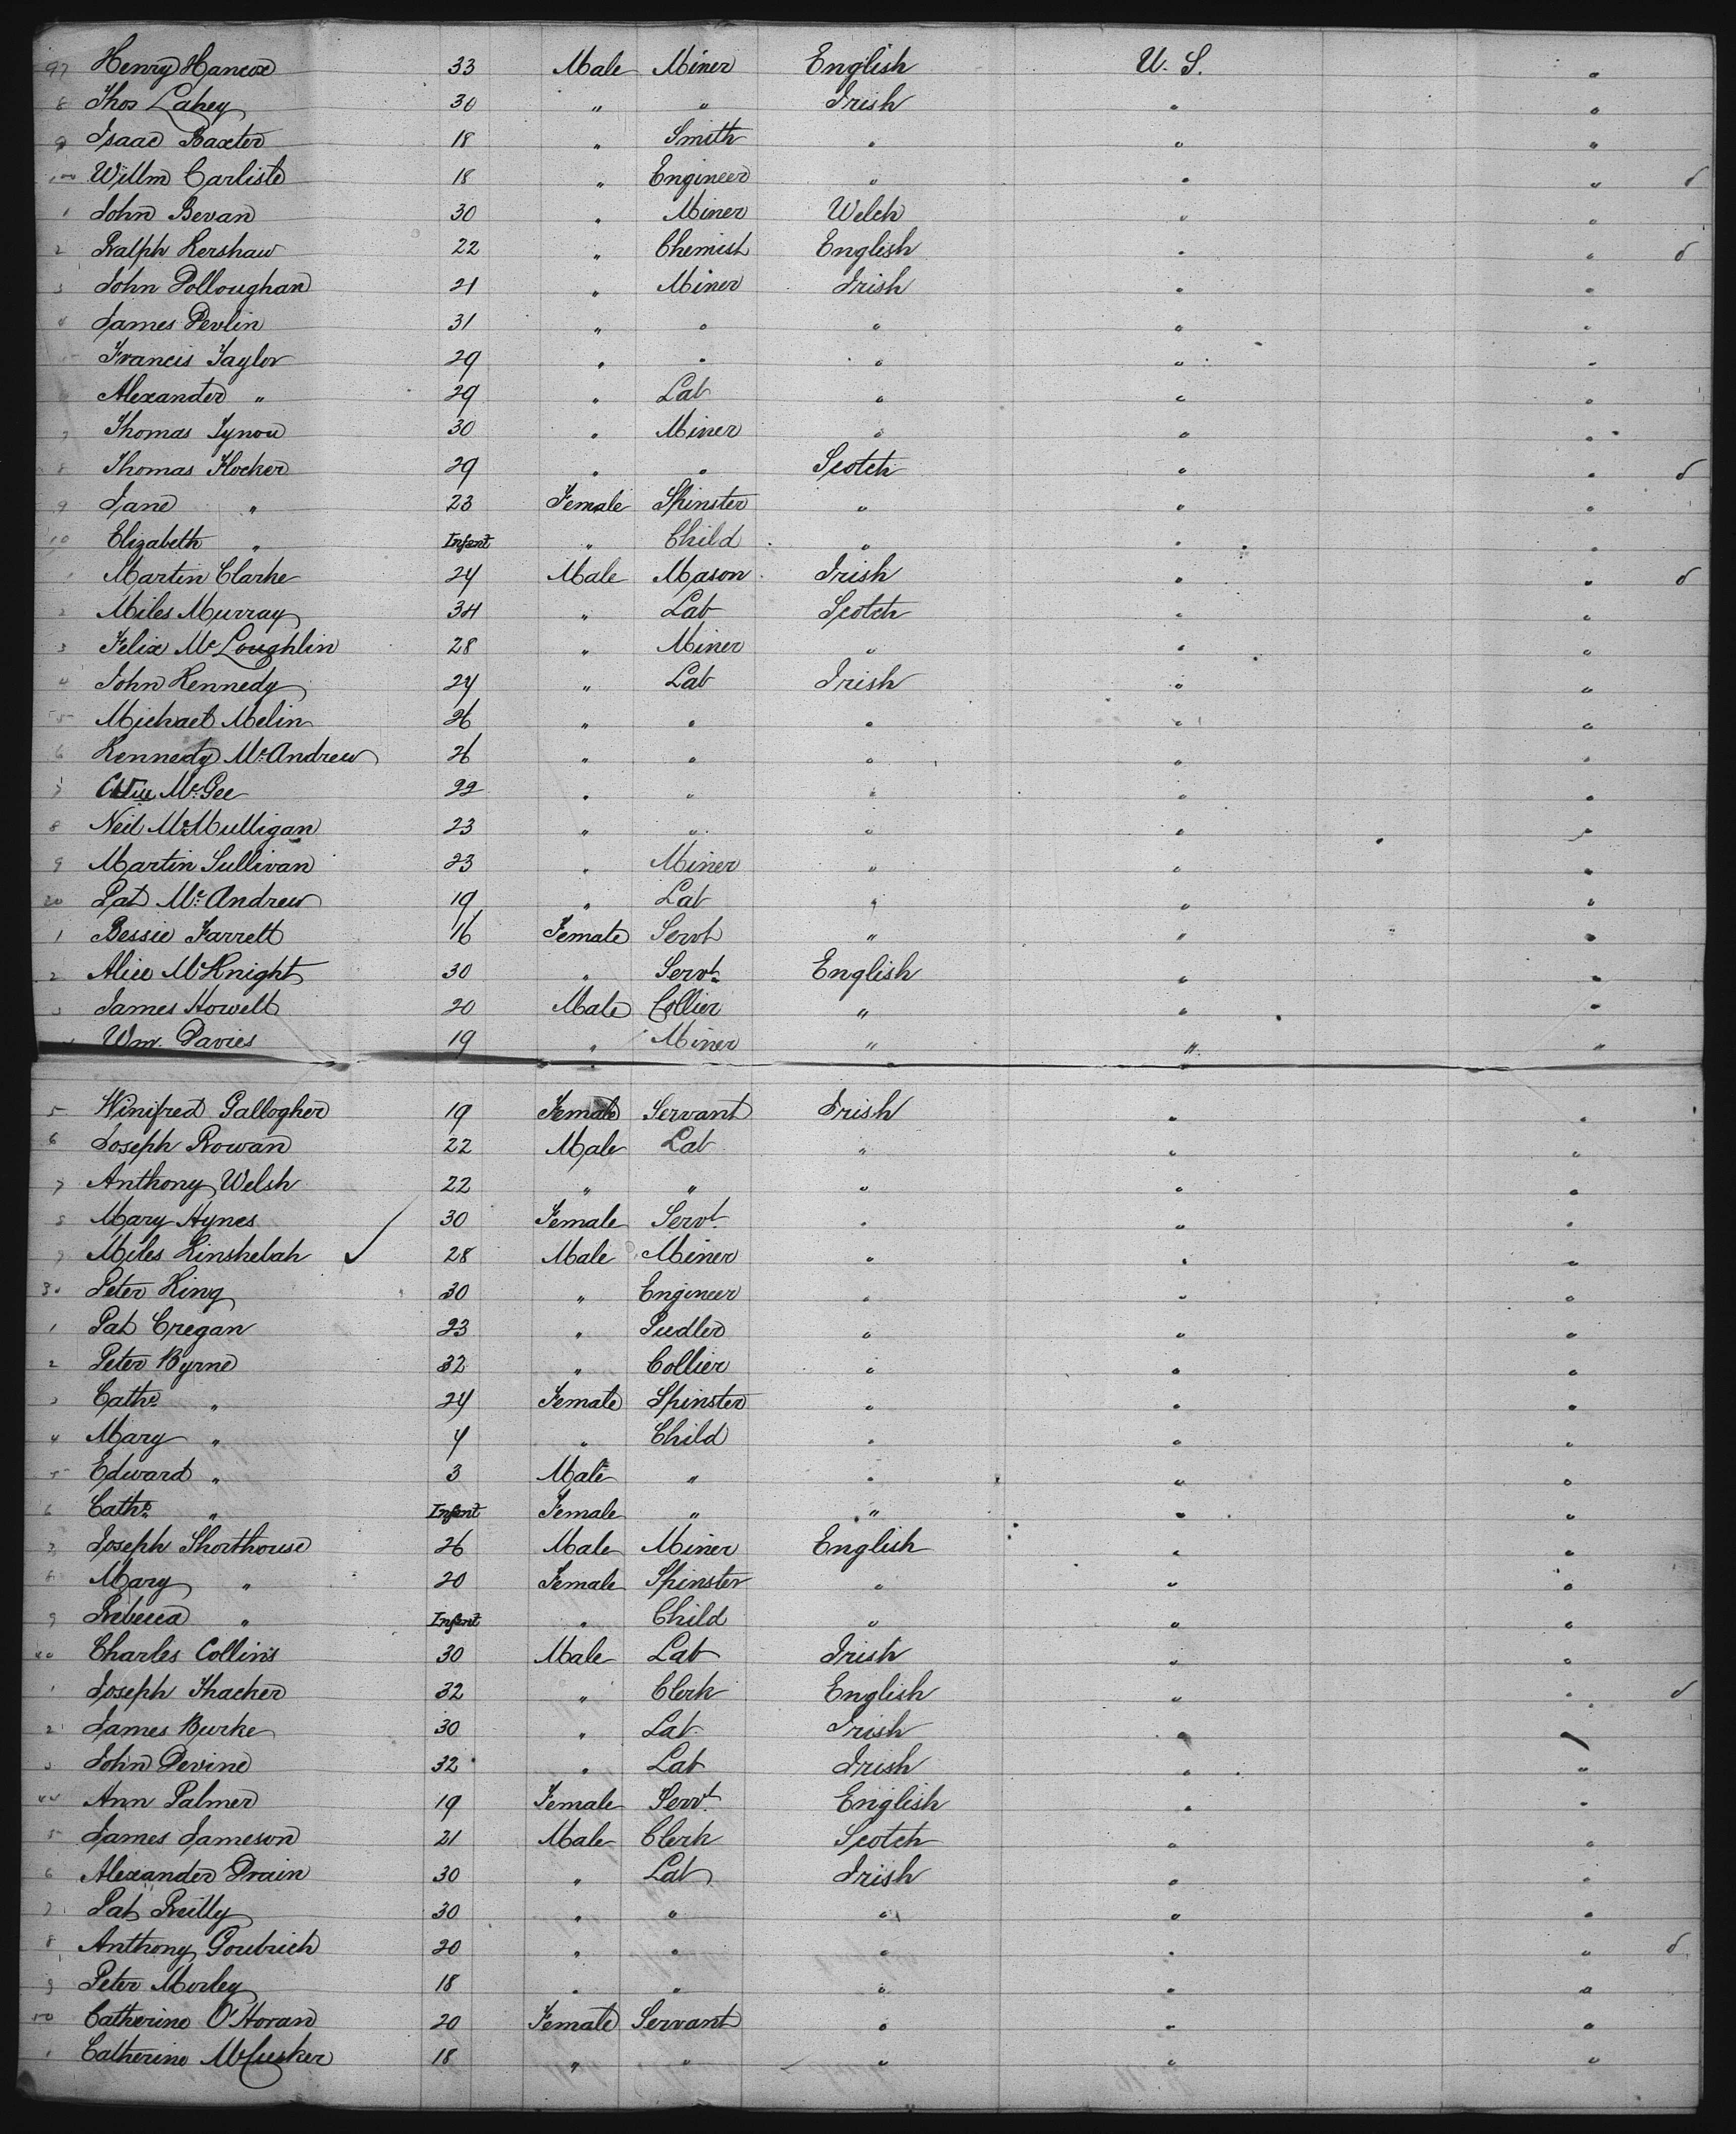 97 Henry Hancox 33 Male Miner English U. S. "
8 Thos Lahey 30 " " Irish " "
9 Isaac Baxter 18 " Smith " " "
100 Willm Carlisle 18 " Engineer " " " d
1 John Bevan 30 " Miner Welch " "
2 Ralph Kershaw 22 " Chemist English " " d
3 John Dolloughan 21 " Miner Irish " "
4 James Devlin 31 " " " " "
5 Francis Taylor 29 " " " " "
Alexander " 29 " Lab " " "
7 Thomas Tynou 30 " Miner " " "
8 Thomas Hocker 29 " " Scotch " " d
9 Jane " 23 Female Spinster " " "
10 Elizabeth " Infant " Child " " "
1 Martin Clarke 24 Male Mason Irish " " d
2 Miles Murray 34 " Lab Scotch " "
3 Felix McLoughlin 28 " Miner " " "
4 John Kennedy 24 " Lab Irish " "
5 Michael Melin 26 " " " " "
6 Kennedy McAndrew 26 " " " " "
7 McGee 22 " " " " "
8 Neil McMulligan 23 " " " " "
9 Martin Sullivan 23 " Miner " " "
20 Pat McAndrew 19 " Lab " " "
1 Bessie Farrell 16 Female Servt " " "
2 Alice McKnight 30 " Servt English " "
3 James Howell 20 Male Collier " " "
Wm. Davies 19 " Miner " " "
5 Winifred Gallogher 19 Female Servant Irish " "
6 Joseph Rowan 22 Male Lab " " "
7 Anthony Welsh 22 " " " " "
8 Mary Hynes 30 Female Servt " " "
9 Miles Kinshelah ✓ 28 Male Miner " " "
30 Peter King 30 " Engineer " " "
1 Pat Cregan 23 " Pudler " " "
2 Peter Byrne 32 " Collier " " "
3 Cathe " 24 Female Spinster " " "
4 Mary " 4 " Child " " "
5 Edward " 3 Male " " " "
6 Cathe " Infant Female " " " "
7 Joseph Shorthouse 26 Male Miner English " "
8 Mary " 20 Female Spinster " " "
9 Rebecca " Infant " Child " " "
40 Charles Collins 30 Male Lab Irish " "
1 Joseph Thacker 32 " Clerk English " " d
2 James Burke 30 " Lab Irish " "
3 John Devine 32 " Lab Irish " "
44 Ann Palmer 19 Female Servt English " "
5 James Jameson 21 Male Clerk Scotch " "
6 Alexander Drain 30 " Lab Irish " "
7 Pat Reilly 30 " " " " "
8 Anthony Goulrich 20 " " " " " d
9 Peter Morley 18 " " " " "
50 Catherine O'Horan 20 Female Servant " " "
1 Catherine McCusker 18 " " " " "